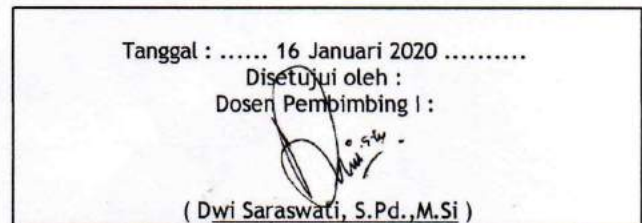 Tanggal : ...... 16 Januari 2020 ..........
Disetujui oleh :
Dosen Pembimbing I :
( Dwi Saraswati, S.Pd.,M.Si )